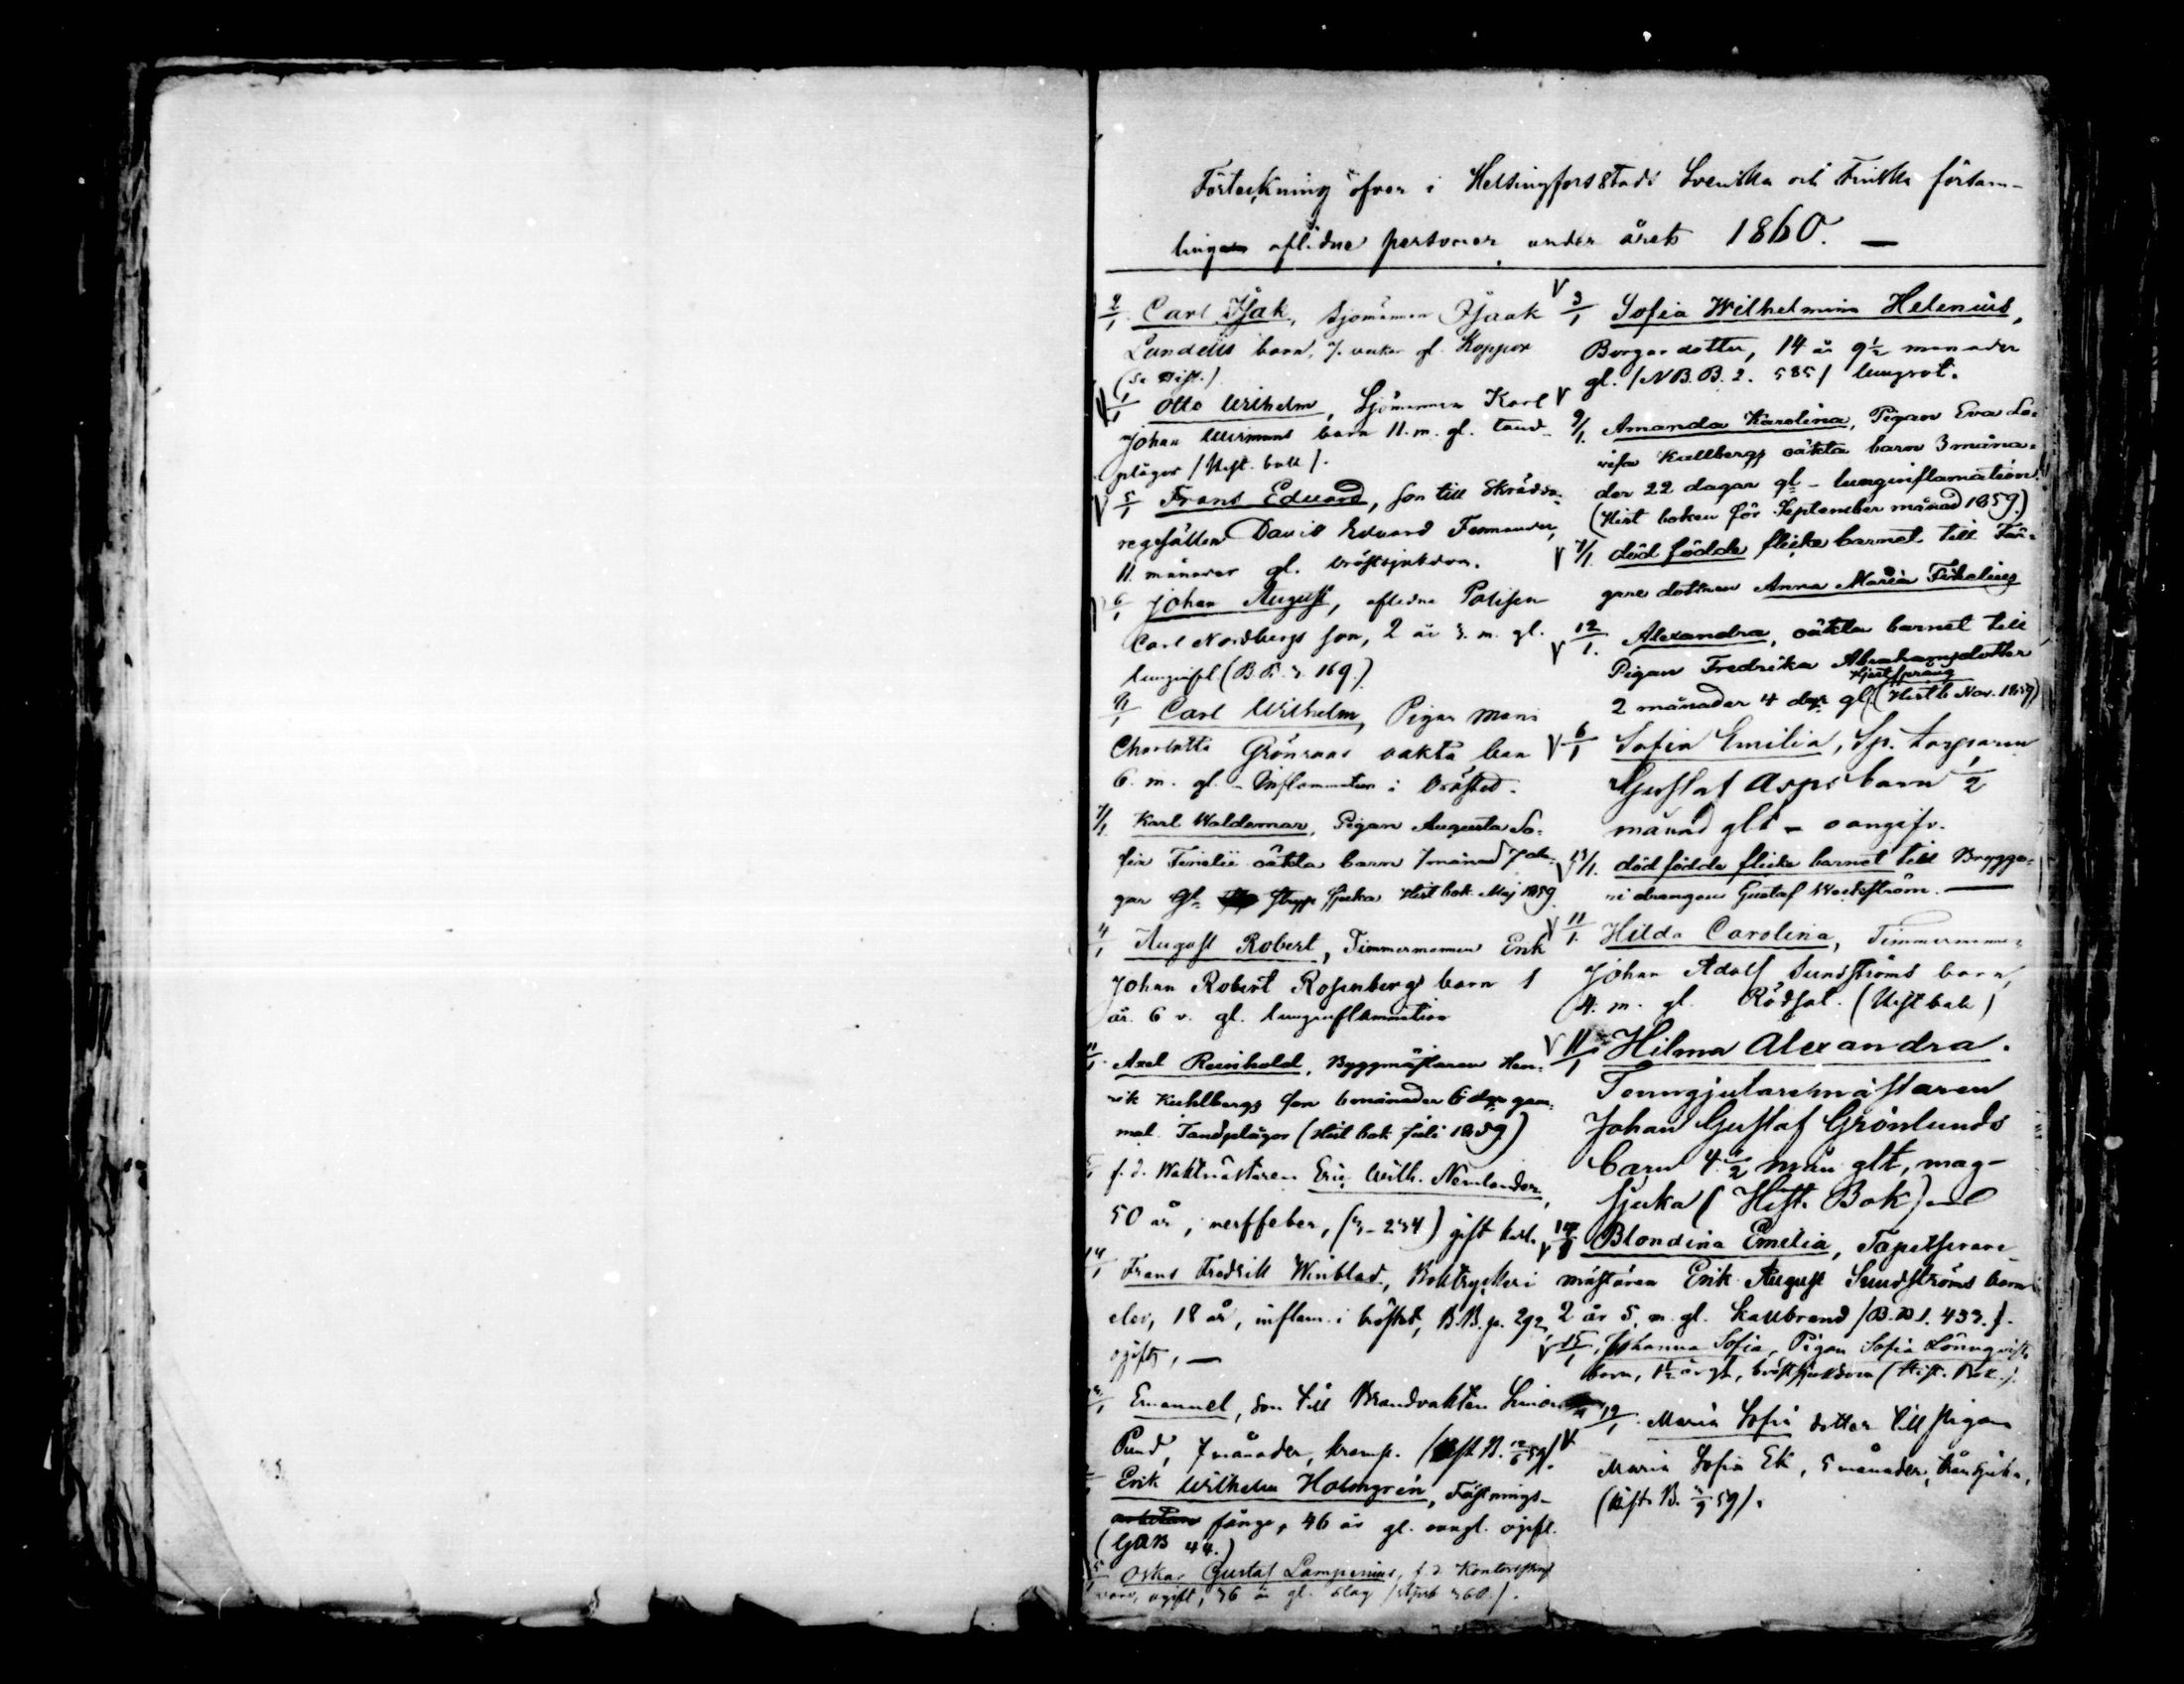 Förteckning öfver i Helsingfors Stads Svenska och Finska försam-
lingen aflidne personer under året 1860. —
2/1 Carl Isak, Sjömannen Isaak
Lundells barn, 7. veckor gl. Koppor
Otto Wilhelm, Sjömannen Karl
Johan barn 11. m. gl. tand-
plågor
5/1 Frans Eduard, son till Skrädda-
regesällen David Edvard
11. månader gl. bröstsjukdom.
6/1 Johan August, aflidne
Carl Nordbergs son, 2 år 3. m. gl.
lunginfl. (B. B. 3. 169.)
Carl Wilhelm, Pigan Maria
Charlotta Grönroos oäkta barn
6. m. gl. - Inflammation i bröstet.
7/1 Karl Waldemar, Pigan Augusta So-
fia oäkta barn 7 månad 7 da-
gar gl. Stryp sjuka Hist bok Maj 1859
4/1 August Robert, Timmermannen Erik
Johan Robert Rosenbergs barn 1
år. 6 v. gl. lunginflammation
11/1 Axel Reinhold, Byggmästaren Hen-
rik Kuhlbergs son 6 månader 6 dgr gam-
mal. Tandplågor (Hist bok Juli 1859)
f. d. Waktmästaren Eric Wilh. Nemlander,
50 år, nerffeber, (3-234) gift karl.
14/1 Frans Fredrik Winblad, Boktryckeri
elev, 18 år, inflam. i bröstet, B.B. p. 292,
ogift, —
Emanuel, son till Brandvakten Simon
Pund, 7 månader, kramp.
Erik Wilhelm Holmgrén, Fästnings-
fånge, 46 år gl. ogift.
(GAB 44.)
Oskar Gustaf Lampenius, f. d.
ogift, 36 år gl. slag
3/1 Sofia Wilhelmina Helenius,
Borgar dotter, 14 år 9½ månader
gl. /N B. B. 2. 585/ lungsot.
9/1. Amanda Karolina, Pigan Eva Lo-
visa Kullbergs oäkta barn 3 måna-
der 22 dagar gl - lunginflamation
(Hist boken för September månad 1859.)
7/1. död födda flicke barnet till
dottren Anna Maria
12/1. Alexandra, oäkta barnet till
Pigan Fredrika Abrahamsdotter
Hjertsprång
2 månader 4 dgr gl. (Hist b Nov. 1859)
6/1 Sofia Emilia, Sp.
Gustaf Asps barn ½
månad glt - oangifv.
13/1. död födda flicke barnet till Brygge-
ri drängen Gustaf Weckström. —
11/1. Hilda Carolina, Timmermannen
Johan Adolf Sundströms barn,
4. m. gl. Rödsot. (Hist bok)
11/1 Hilma Alexandra.
Tenngjutaremästaren
Johan Gustaf Grönlunds
barn 4½ mån glt, mag-
sjuka (Hist. Bok)
Blondina Emelia, Tapetserare-
mästaren Erik August Sundströms barn
2 år 5. m. gl. kallbrand /B. B. 1. 433./.
15/1, Johanna Sofia, Pigan Sofia Lönnqvists
barn, 1½ år gl, bröstsjukdom (Hist. Bok.).
19/1. Maria Sofia dotter till pigan
Maria Sofia Ek, 5 månader,